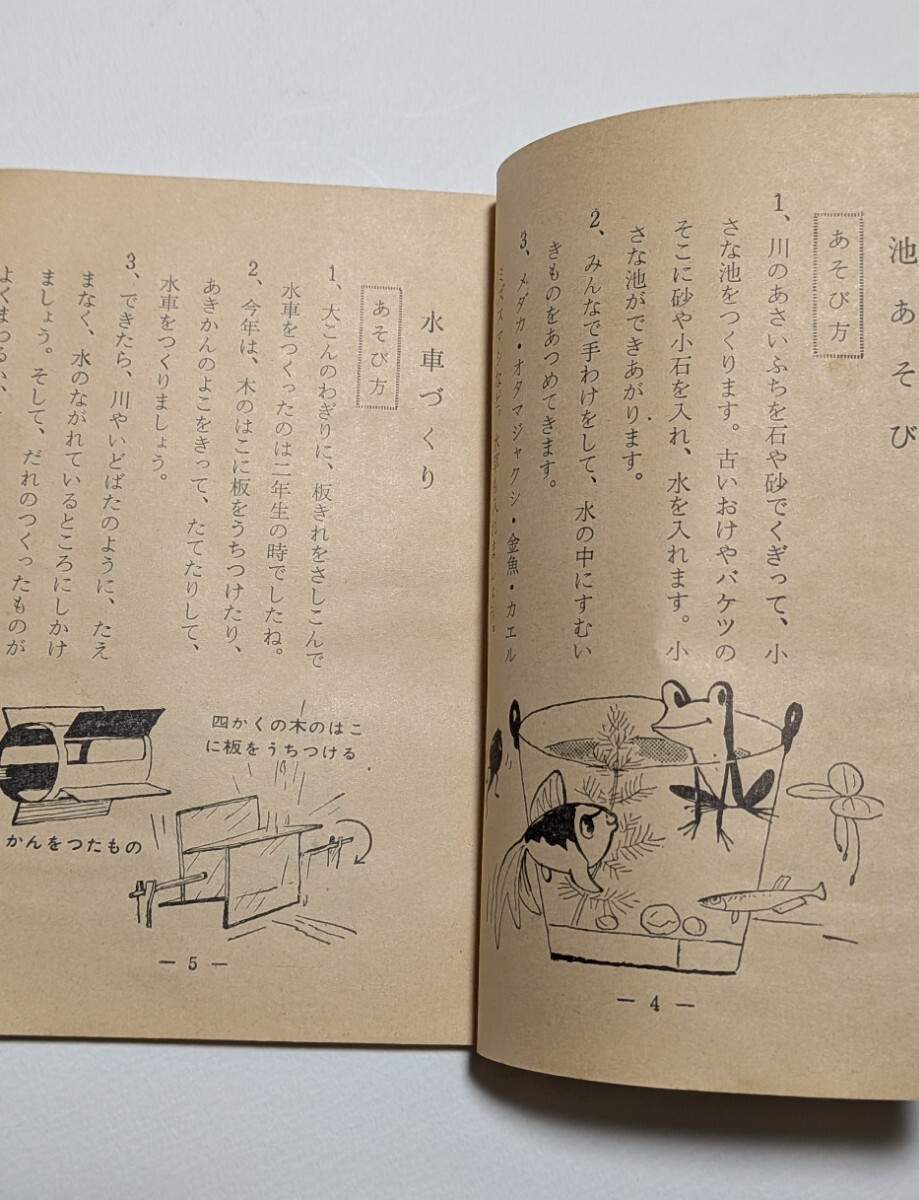 池あそび
あそび方
1、川のあさいふちを石や砂でくぎって、小
さな池をつくります。古いおけやバケツの
そこに砂や小石を入れ、水を入れます。小
さな池ができあがります。
2、みんなで手わけをして、水の中にすむい
きものをあつめてきます。
3、メダカ・オタマジャクシ・金魚・カエル
ミズスマシなど。水草も入れましょう。
— 4 —
水車づくり
あそび方
1、大こんのわぎりに、板きれをさしこんで
水車をつくったのは二年生の時でしたね。
2、今年は、木のはこに板をうちつけたり、
あきかんのよこをきって、たてたりして、
水車をつくりましょう。
3、できたら、川やいどばたのように、たえ
まなく、水のながれているところにしかけ
ましょう。そして、だれのつくったものが
よくまわるか、
四かくの木のはこ
に板をうちつける
かんをつたもの
— 5 —